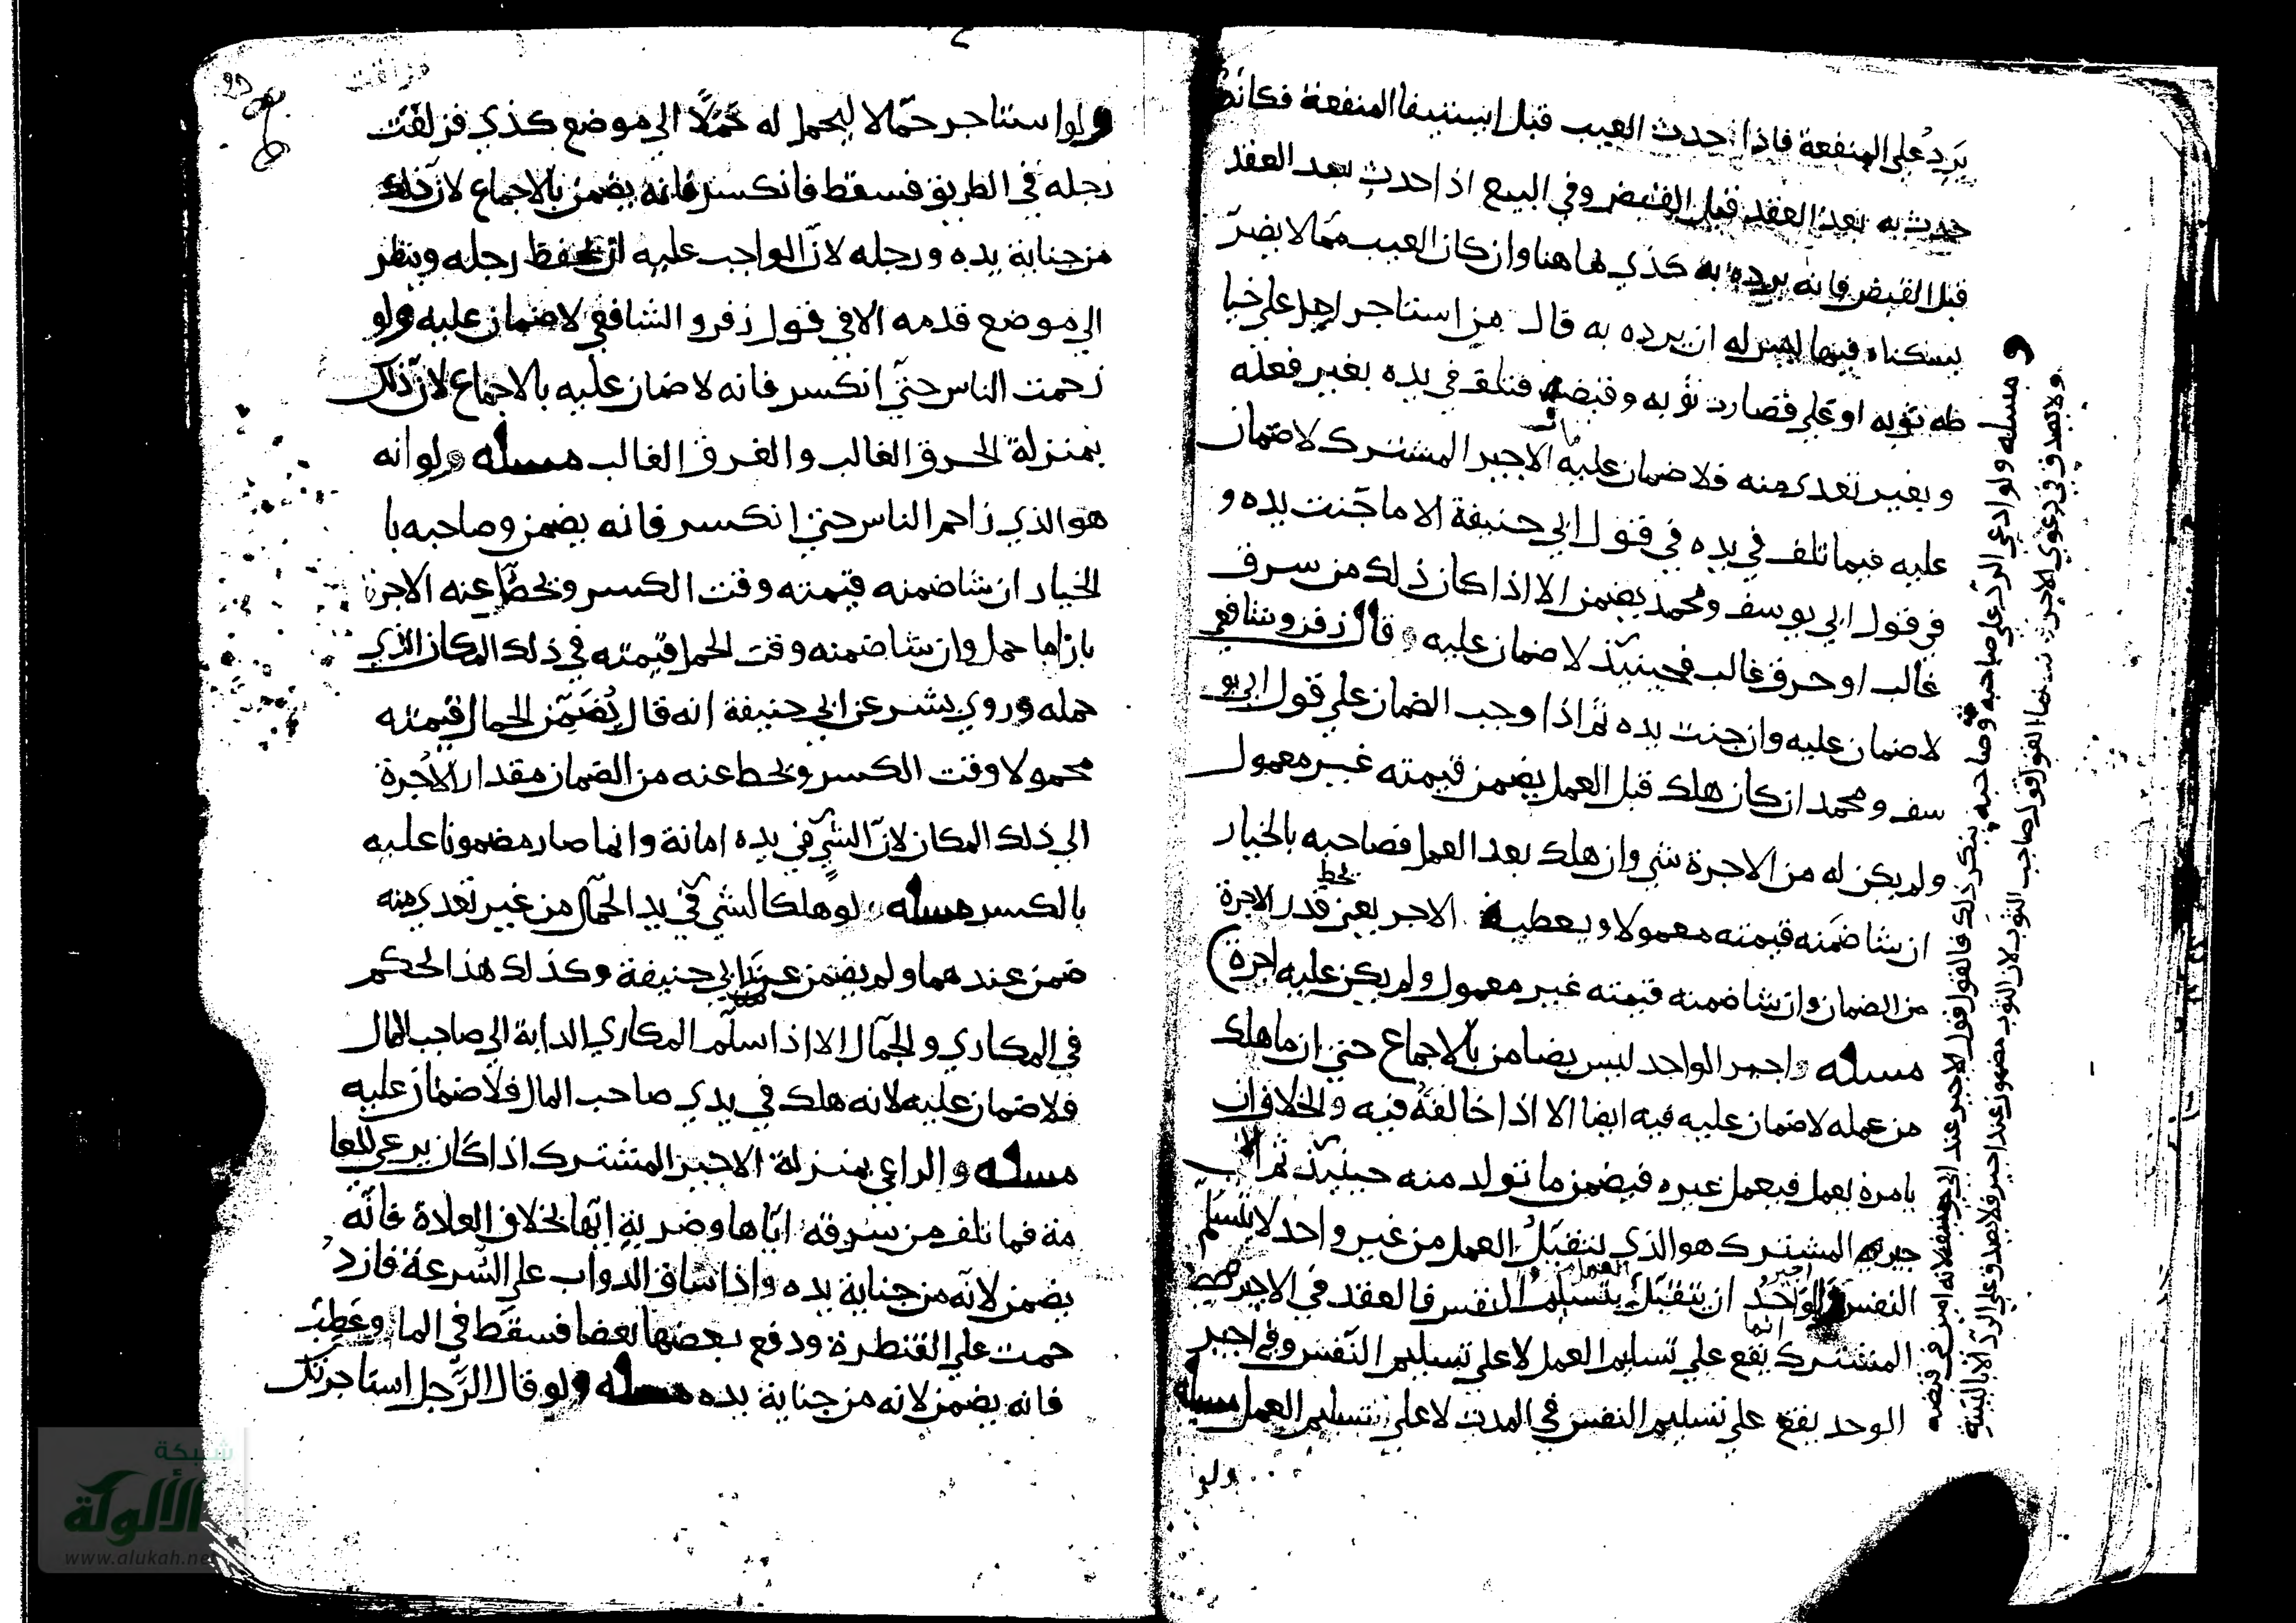 يَرِدُ على المنفعة فاذا حدث العيب قبل استيفا المنفعة فكانه
حدث به بعد العقد قبل القبض وفي البيع اذا حدث بعد العقد
قبل القبض فانه يرده به كذي هاهنا وان كان العيب مما لا يضر
بسكناه فيها ليس له ان يرده به قال من استاجر اجل على خيا
طه ثوبه او على قصارة ثوبه وقبضه فتلف في يده بغير فعله
وبغير تعدي منه فلا ضمان عليه الاجير المشترك لا ضمان
عليه فيما تلف في يده في قول ابي حنيفة الا ما جنت يده و
في قول ابي يوسف ومحمد يضمن الا اذا كان ذلك من سرف
غالب او حرق غالب فحينيذ لا ضمان عليه قال زفر وشافعي
لا ضمان عليه وان جنت يده ثم اذا وجب الضمان على قول ابي يو
سف ومحمد ان كان هلك قبل العمل يضمن قيمته غير معمول
ولم يكن له من الاجرة شي وان هلك بعد العمل فصاحبه بالخيار
ان شا ضمنه قيمته معمولا ويعطيه الاجر يعني يحط قدر الاجرة
من الضمان وان شا ضمنه قيمته غير معمول ولم يكن عليه اجرة
مسله واجير الواحد ليس بضامن بالاجماع حتي ان ما هلك
من عمله لا ضمان عليه فيه ايضا الا اذا خالفه فيه والخلاف ان
يامره بعمل فيعمل غيره فيضمن ما تولد منه حينيذ ثم الا
جير المشترك هو الذي يتقبل العمل من غير واحد لا بتسليم
النفس واجير الواحد ان يتقبل العمل بتسليم النفس فالعقد في الاجير
المشترك انما يقع على تسليم العمل لا على تسليم النفس وفي اجير
الوحد يقع على تسليم النفس في المدت لا على تسليم العمل مسله
ولو
مسله ولو ادعي الرد على صاحبه وصاحبه ينكر ذلك فالقول قول الاجير عند ابي حنيفة لانه امين في قبضه
ولا يصدق في دعوي الاجر وعندهما القول قول صاحب الثوب لان الثوب مضمون عند اجير فلا يصدق على الرد الا بالبينة
ولو استاجر حمّالا ليحمل له حَمْلًا الي موضع كذي فزلقت
رجله في الطريق فسقط فانكسر فانه يضمن بالاجماع لان ذلك
من جناية يده ورجله لان الواجب عليه ان يحفظ رجله وينظر
الي موضع قدمه الا في قول زفر والشافعي لا ضمان عليه ولو
زحمت الناس حتي انكسر فانه لا ضمان عليه بالاجماع لان ذلك
بمنزلة الحرق الغالب والغرق الغالب مسله ولو انه
هو الذي زاحم الناس حتي انكسر فانه يضمن وصاحبه با
لخيار ان شا ضمنه قيمته وقت الكسر ويحط عنه الاجر
بازا ما حمل وان شا ضمنه وقت الحمل قيمته في ذلك المكان الذي
حمله وروي بشر عن ابي حنيفة انه قال يُضَمِّن الحمال قيمته
محمولا وقت الكسر ويحط عنه من الضمان مقدار الاُجرة
الي ذلك المكان لان الشي في يده امانة وانما صار مضمونا عليه
بالكسر مسله لو هلك الشي في يد الحمال من غير تعدي منه
ضمن عندهما ولم يضمن عند ابي حنيفة وكذلك هذا الحكم
في المكاري والجمال الا اذا سلم المكاري الدابة الي صاحب المال
فلا ضمان عليه لانه هلك في يدي صاحب المال فلا ضمان عليه
مسله والراعي بمنزلة الاجير المشترك اذا كان يرعي للعا
مة فما تلف من سوقه اياها وضربه اياها بخلاف العادة فانه
يضمن لانه من جناية يده واذا ساق الدواب على السرعة فازد
حمت على القنطرة ودفع بعضها بعضا فسقط في الما وعطبَ
فانه يضمن لانه من جناية يده مسله ولو قال الرجل استاجرتك
شبكة
الألوكة
www.alukah.net